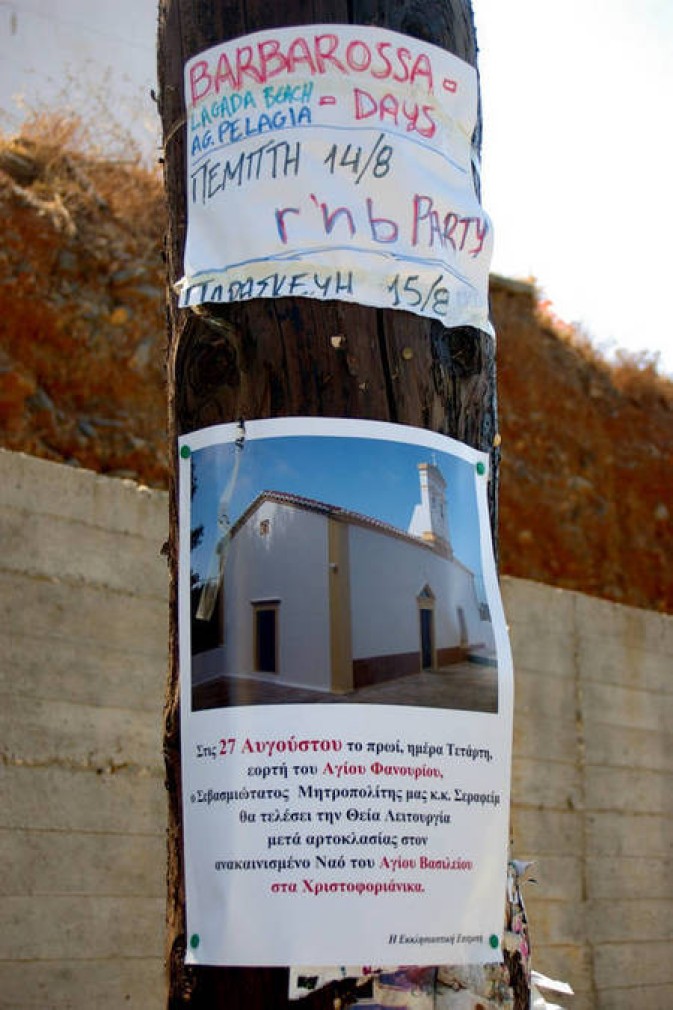 BARBAROSSA -
LAGADA BEACH - DAYS
AG. PELAGIA
ΠΕΜΠΤΗ 14/8
r'n b PARTY
ΠΑΡΑΣΚΕΥΗ 15/8
Στις 27 Αυγούστου το πρωί, ημέρα Τετάρτη,
εορτή του Αγίου Φανουρίου,
ο Σεβασμιώτατος Μητροπολίτης μας κ.κ. Σεραφείμ
θα τελέσει την Θεία Λειτουργία
μετά αρτοκλασίας στον
ανακαινισμένο Ναό του Αγίου Βασιλείου
στα Χριστοφοριάνικα.
Η Εκκλησιαστική Επιτροπή